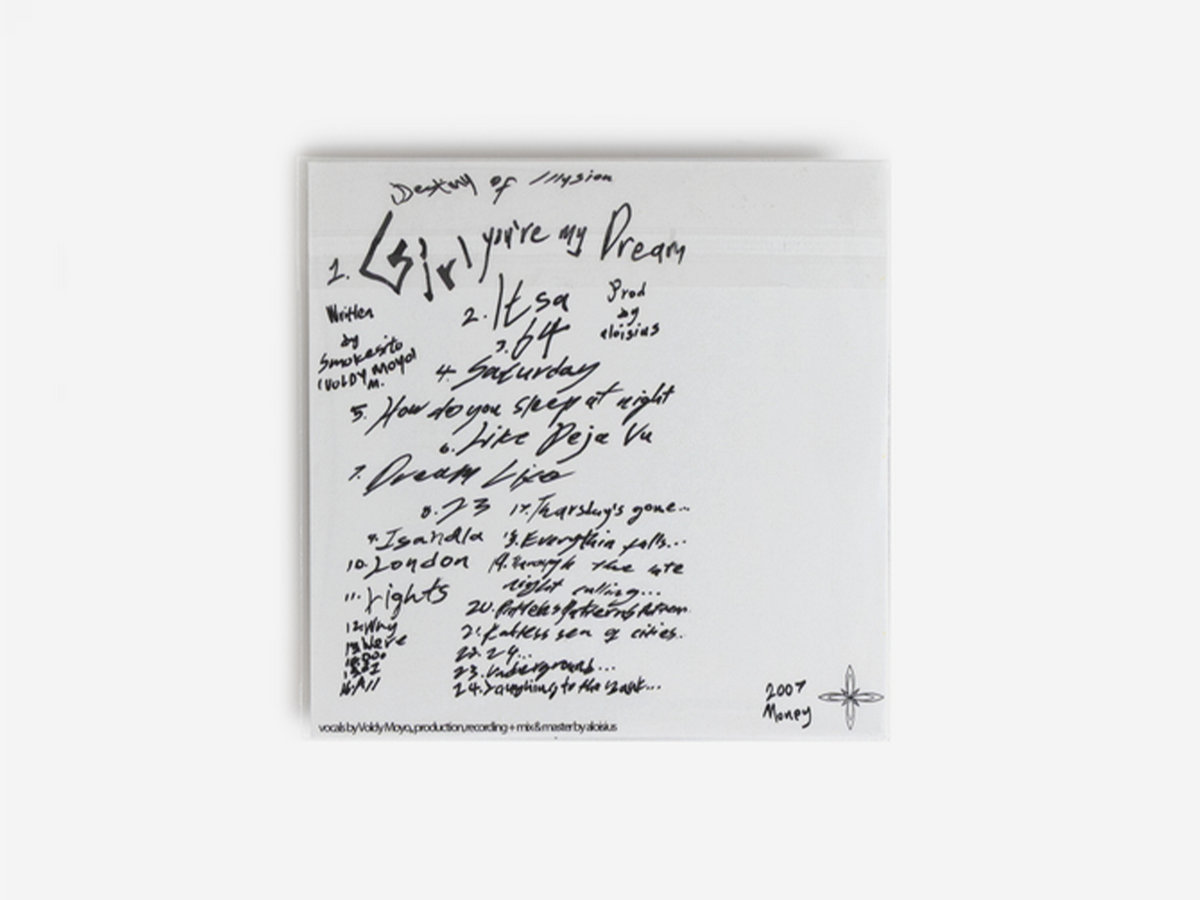 Destiny of Illusion
1. Girl you're my Dream
2. Itsa
Prod
by
aloisius
Written
by
Smokesito
(VOLDY MOYO)
M.
3. 64
4. Saturday
5. How do you sleep at night
6. Like Deja Vu
7. Dream Like
8. 23
9. Isandla
10. London
11. Lights
12. Why
13. Were
14. Doo
15. I
16. All
17. Thursday's gone...
18. Everythin falls...
19. Through the late
night calling...
20.
21. sea of cities.
22. 24...
23. Underground...
24. Laughing to the bank...
2007
Money
vocals by Voldy Moyo, production, recording + mix & master by aloisius